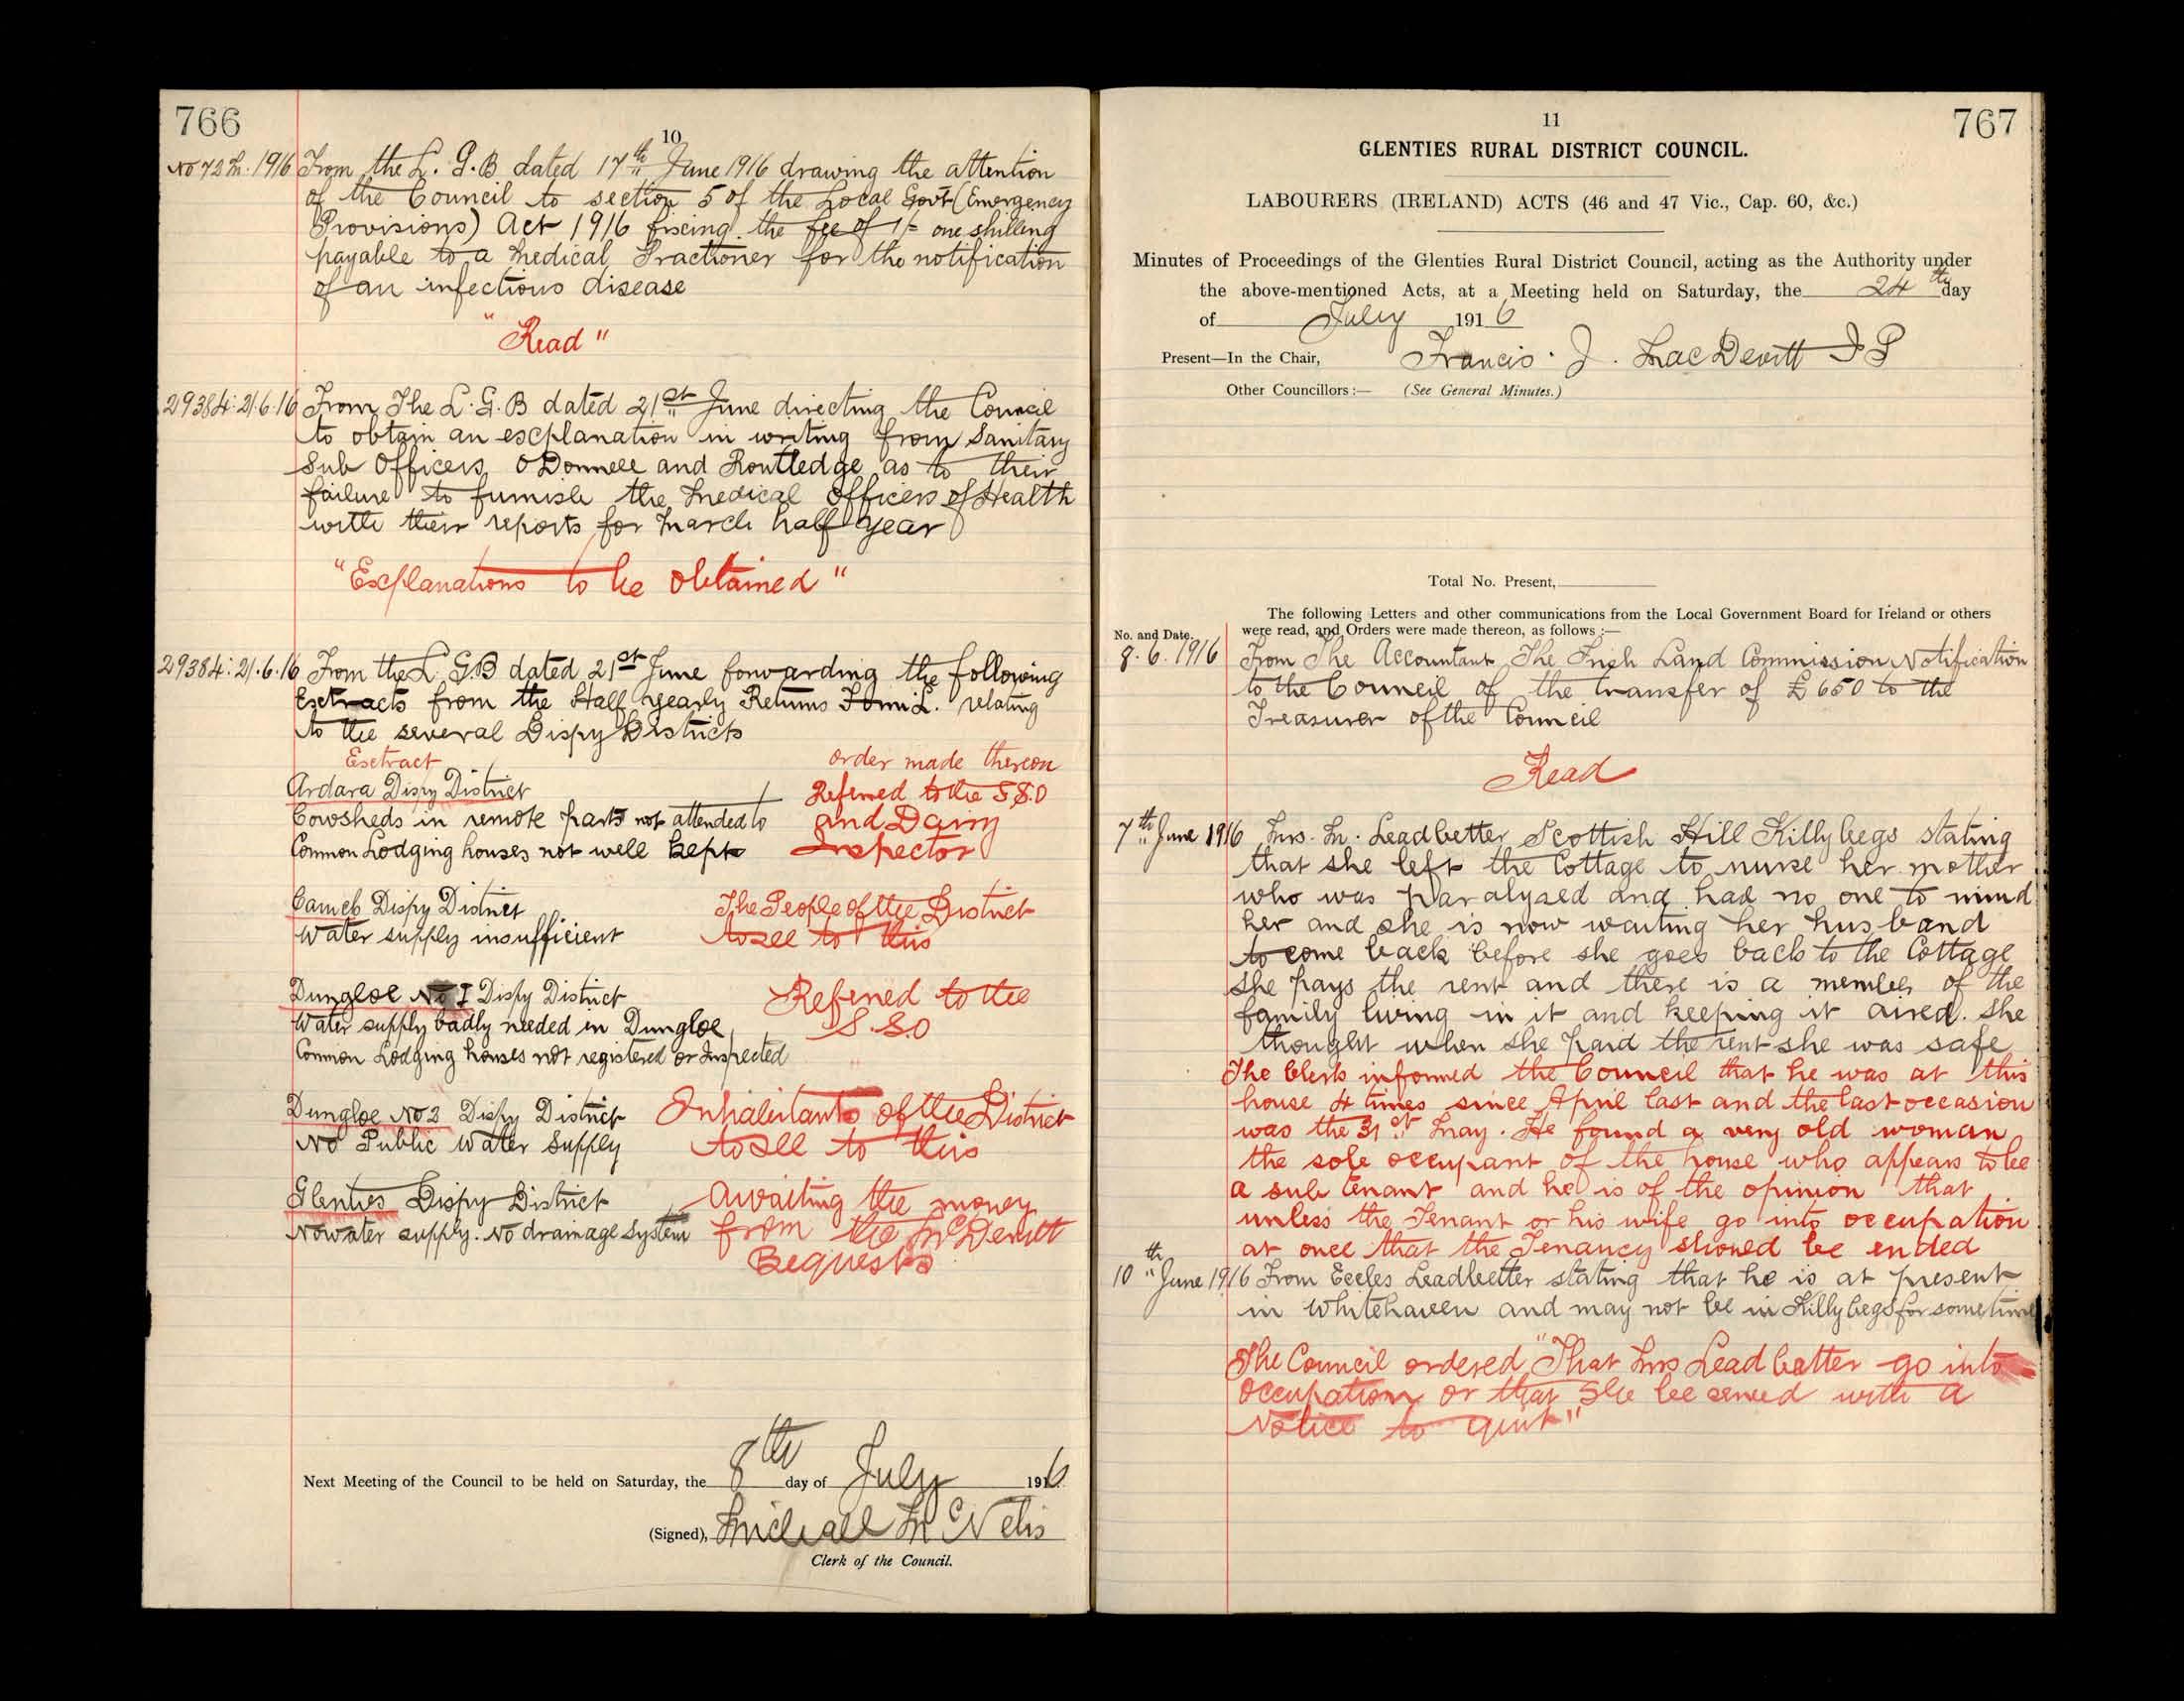 766
10
No 72 M. 1916 From the L. G. B dated 17th June 1916 drawing the attention
of the Council to section 5 of the Local Govt (Emergency
Provisions) Act 1916 fixing the fee of 1/- one shilling
payable to a Medical Practioner for the notification
of an infectious disease
"Read"
29384: 21.6.16 From The L. G. B dated 21st June directing the Council
to obtain an explanation in writing from Sanitary
Sub Officers O'Donnell and Routledge as to their
failure to furnish the Medical Officers of Health
with their reports for March half year
"Explanations to be obtained"
29384: 21.6.16 From the L G.B dated 21st June forwarding the following
Extracts from the Half yearly Returns Form L. relating
to the several Dispy Districts
Extract order made thereon
Ardara Dispy District Referred to the S S.O
Cowsheds in remote parts not attended to and Dairy
Common Lodging houses not well kept Inspector
Dispy District The People of the District
Water supply insufficient to see to this
Dungloe No I Dispy District Referred to the
Water supply badly needed in Dungloe S.S.O
Common Lodging houses not registered or Inspected
Dungloe No 2 Dispy District Inhabitants of the District
No Public Water Supply to see to this
Glenties Dispy District Awaiting the money
No water supply. No drainage System from the McDevitt
Bequests
Next Meeting of the Council to be held on Saturday, the 8th day of July 1916
(Signed), Michael McNelis
Clerk of the Council.
767
11
GLENTIES RURAL DISTRICT COUNCIL.
LABOURERS (IRELAND) ACTS (46 and 47 Vic., Cap. 60, &c.)
Minutes of Proceedings of the Glenties Rural District Council, acting as the Authority under
the above-mentioned Acts, at a Meeting held on Saturday, the 24th day
of July 1916
Present—In the Chair, Francis. J. MacDevitt J P
Other Councillors:— (See General Minutes.)
Total No. Present,
The following Letters and other communications from the Local Government Board for Ireland or others
No. and Date. were read, and Orders were made thereon, as follows:—
8.6.1916 From The Accountant The Irish Land Commission Notification
to the Council of the transfer of £650 to the
Treasurer of the Council
Read
7th June 1916 Mrs. M. Leadbetter Scottish Hill Killybegs stating
that she left the Cottage to nurse her mother
who was paralysed and had no one to mind
her and she is now waiting her husband
to come back before she goes back to the Cottage
She pays the rent and there is a member of the
family living in it and keeping it aired. She
thought when she paid the rent she was safe
The Clerk informed the Council that he was at this
house 4 times since April last and the last occasion
was the 31st May. He found a very old woman
the sole occupant of the house who appears to be
a sub tenant and he is of the opinion that
unless the Tenant or his wife go into occupation
at once that the Tenancy should be ended
10th June 1916 From Eccles Leadbetter stating that he is at present
in Whitehaven and may not be in Killybegs for some time
The Council ordered "That Mrs Leadbetter go into
occupation or that she be served with a
Notice to quit"